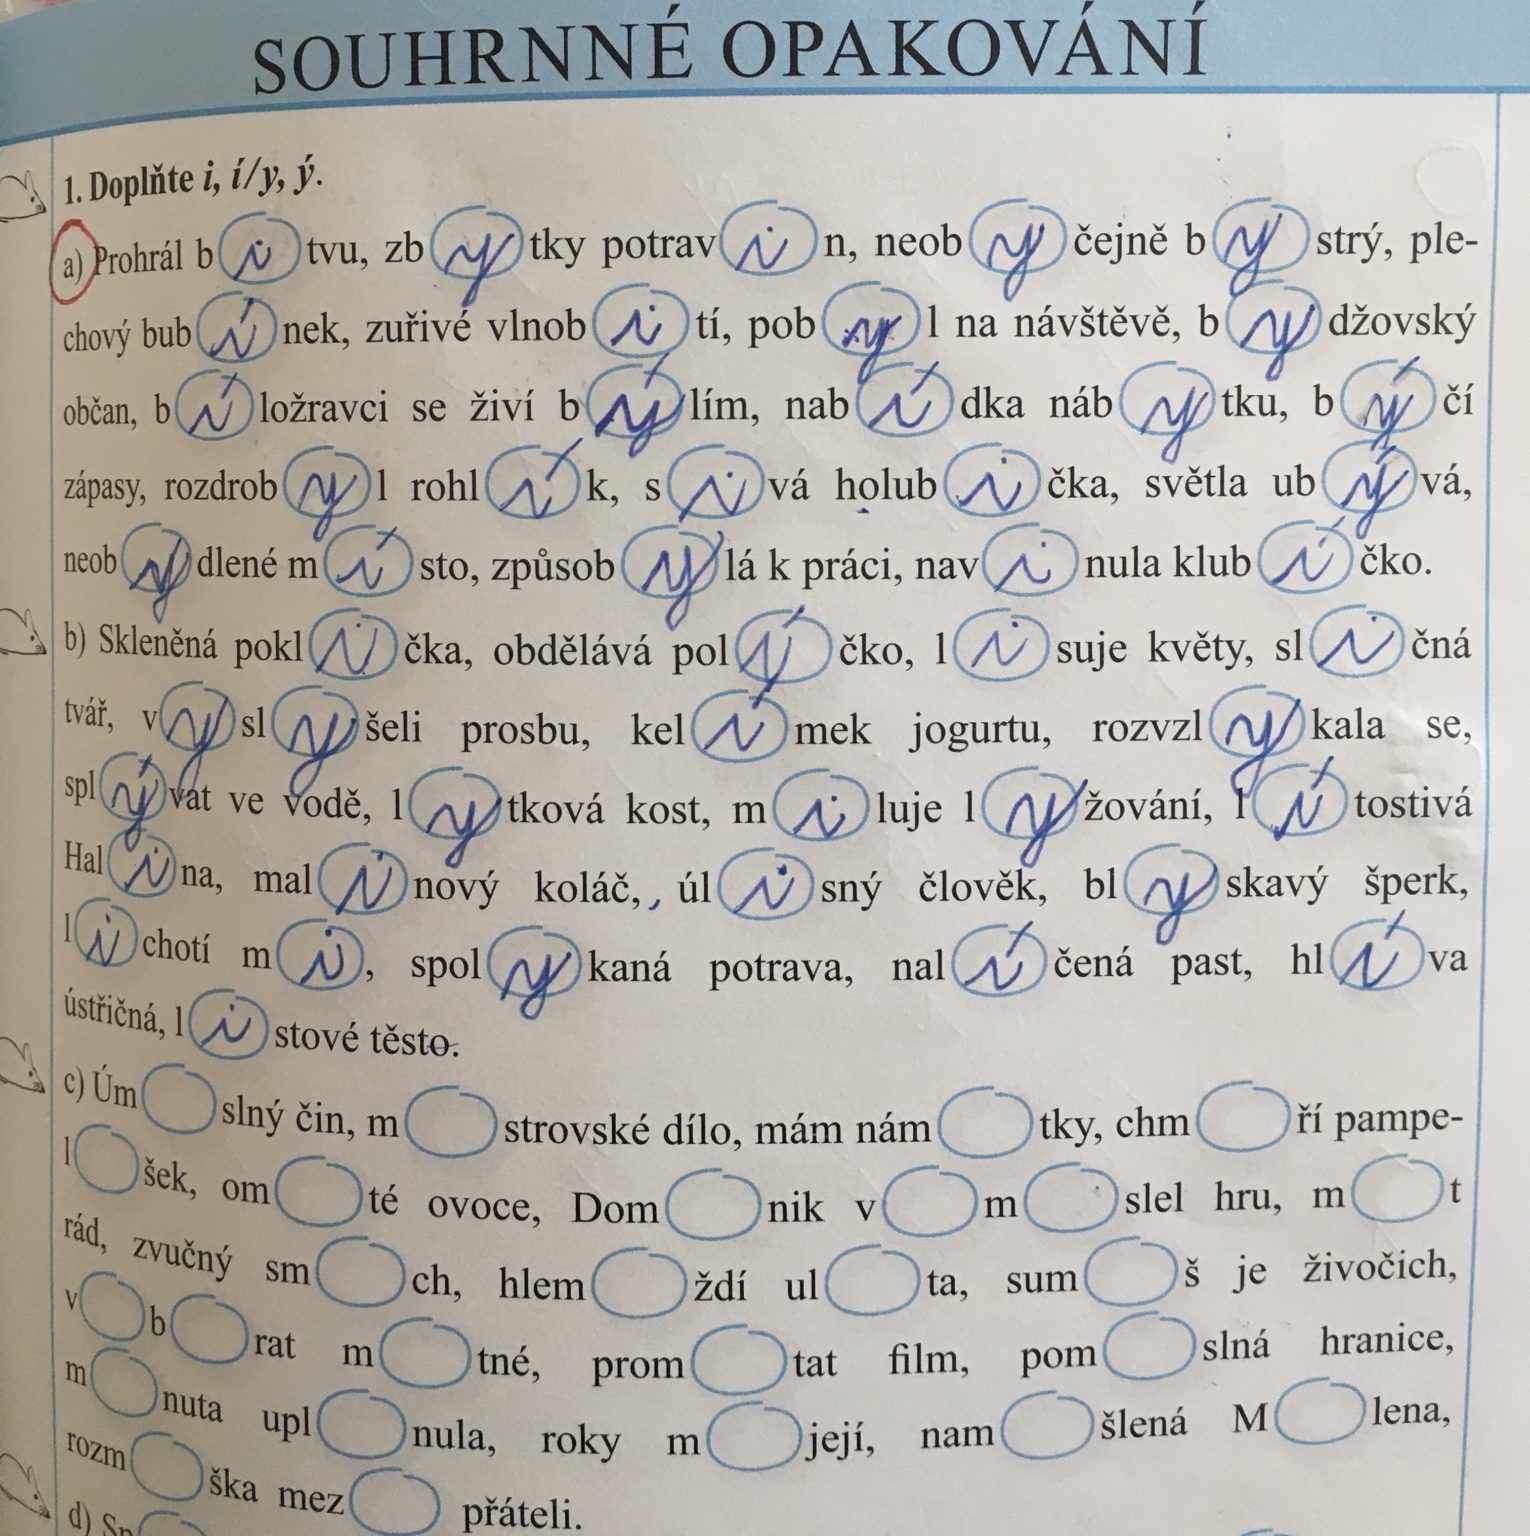 SOUHRNNÉ OPAKOVÁNÍ
1. Doplňte i, í/y, ý.
a) Prohrál bitvu, zbytky potravin, neobyčejně bystrý, ple-
chový bubínek, zuřivé vlnobití, pobyl na návštěvě, bydžovský
občan, bíložravci se živí býlím, nabídka nábytku, býčí
zápasy, rozdrobyl rohlík, sivá holubička, světla ubývá,
neobydlené místo, způsobylá k práci, navinula klubíčko.
b) Skleněná poklička, obdělává políčko, lisuje květy, sličná
tvář, vyslyšeli prosbu, kelímek jogurtu, rozvzlykala se,
splývat ve vodě, lytková kost, miluje lyžování, lítostivá
Halina, malinový koláč, úlisný člověk, blyskavý šperk,
lichotí mi, spolykaná potrava, nalíčená past, hlíva
ústřičná, listové těsto.
c) Úm○slný čin, m○strovské dílo, mám nám○tky, chm○ří pampe-
l○šek, om○té ovoce, Dom○nik v○m○slel hru, m○t
rád, zvučný sm○ch, hlem○ždí ul○ta, sum○š je živočich,
v○b○rat m○tné, prom○tat film, pom○slná hranice,
m○nuta upl○nula, roky m○její, nam○šlená M○lena,
rozm○ška mez○ přáteli.
d) Sp